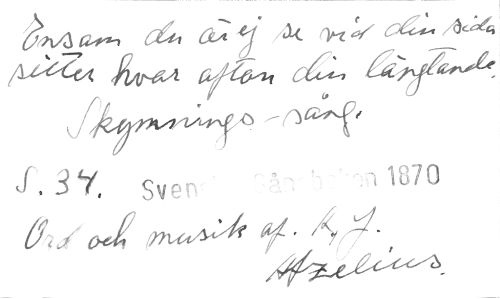 Ensam du är ej se vid din sida
sitter hvar afton din längtande.
Skymnings-sång.
S. 34. Svenska Sångboken 1870
Ord och musik af. K. J.
Afzelius.